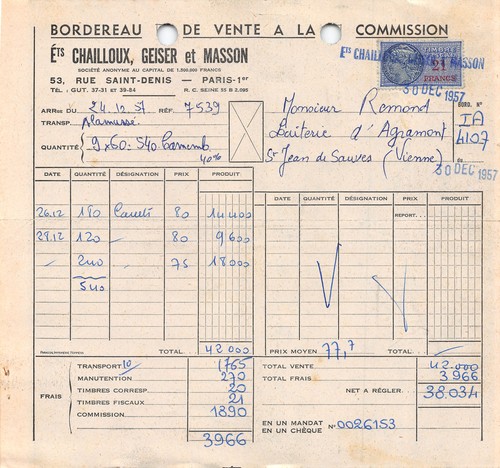 BORDEREAU DE VENTE A LA COMMISSION
Éts CHAILLOUX, GEISER et MASSON
SOCIÉTÉ ANONYME AU CAPITAL DE FRANCS
53, RUE SAINT-DENIS — PARIS-1er
TÉL. : GUT. 37-31 et 39-84 R. C. SEINE 55 B 2.095
Éts CHAILLOUX, GEISER ET MASSON
TIMBRE
21
FRANCS
30 DEC 1957
ARRIVÉ DU 24.12.57 RÉF. 7539
TRANSP.
QUANTITÉ 9x60 = 540 Camemb
40%
Monsieur Remond
Laiterie d'Agramont
St Jean de Sauves (Vienne)
BORD. N°
IA
4107
30 DEC 1957
DATE QUANTITÉ DÉSIGNATION PRIX PRODUIT
26.12 180 80 14400
28.12 120 - 80 9600
- 240 - 75 18000
540
TOTAL 42000
DATE QUANTITÉ DÉSIGNATION PRIX PRODUIT
REPORT
PRIX MOYEN 77,7 TOTAL
FRAIS
TRANSPORT 10 1765
MANUTENTION 270
TIMBRES CORRESP. 20
TIMBRES FISCAUX 21
COMMISSION 1890
3966
TOTAL VENTE 42.000
TOTAL FRAIS 3966
NET A RÉGLER 38.034
EN UN MANDAT
EN UN CHÈQUE N° 0026153